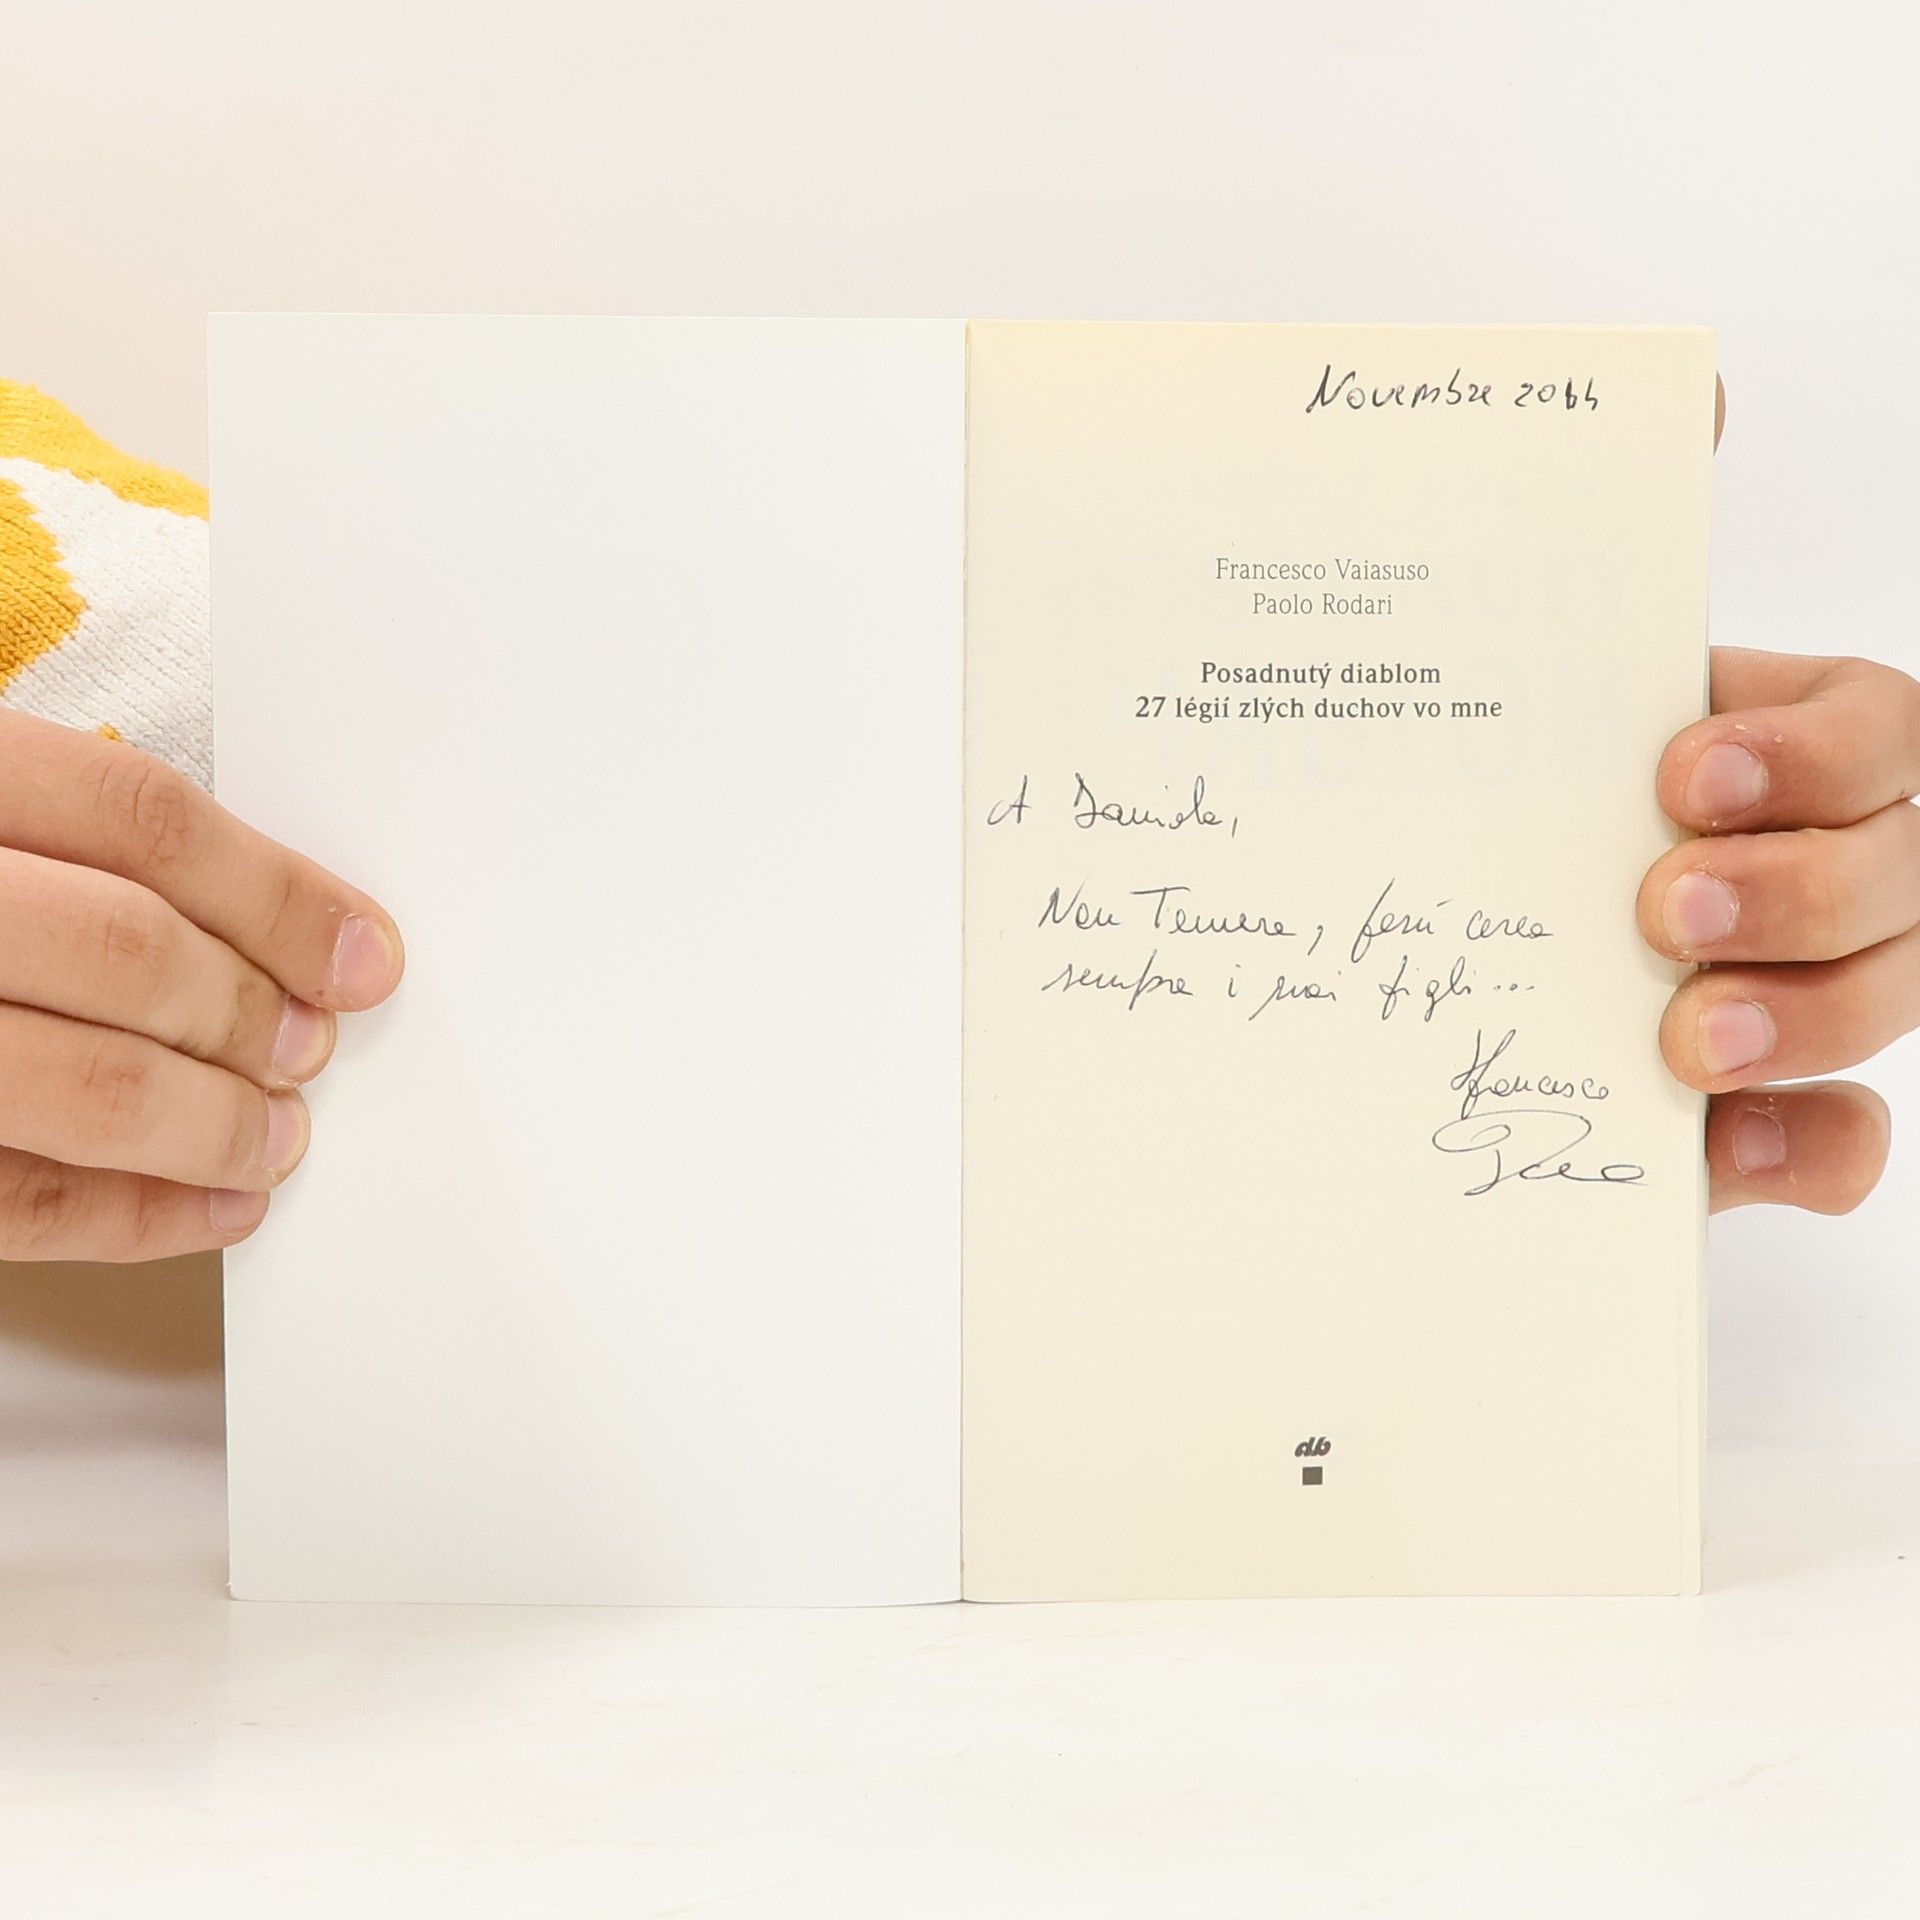 Novembre 2014
Francesco Vaiasuso
Paolo Rodari
Posadnutý diablom
27 légií zlých duchov vo mne
A Daniela,
Non Temere, Gesù cerca
sempre i suoi figli...
Francesco
db